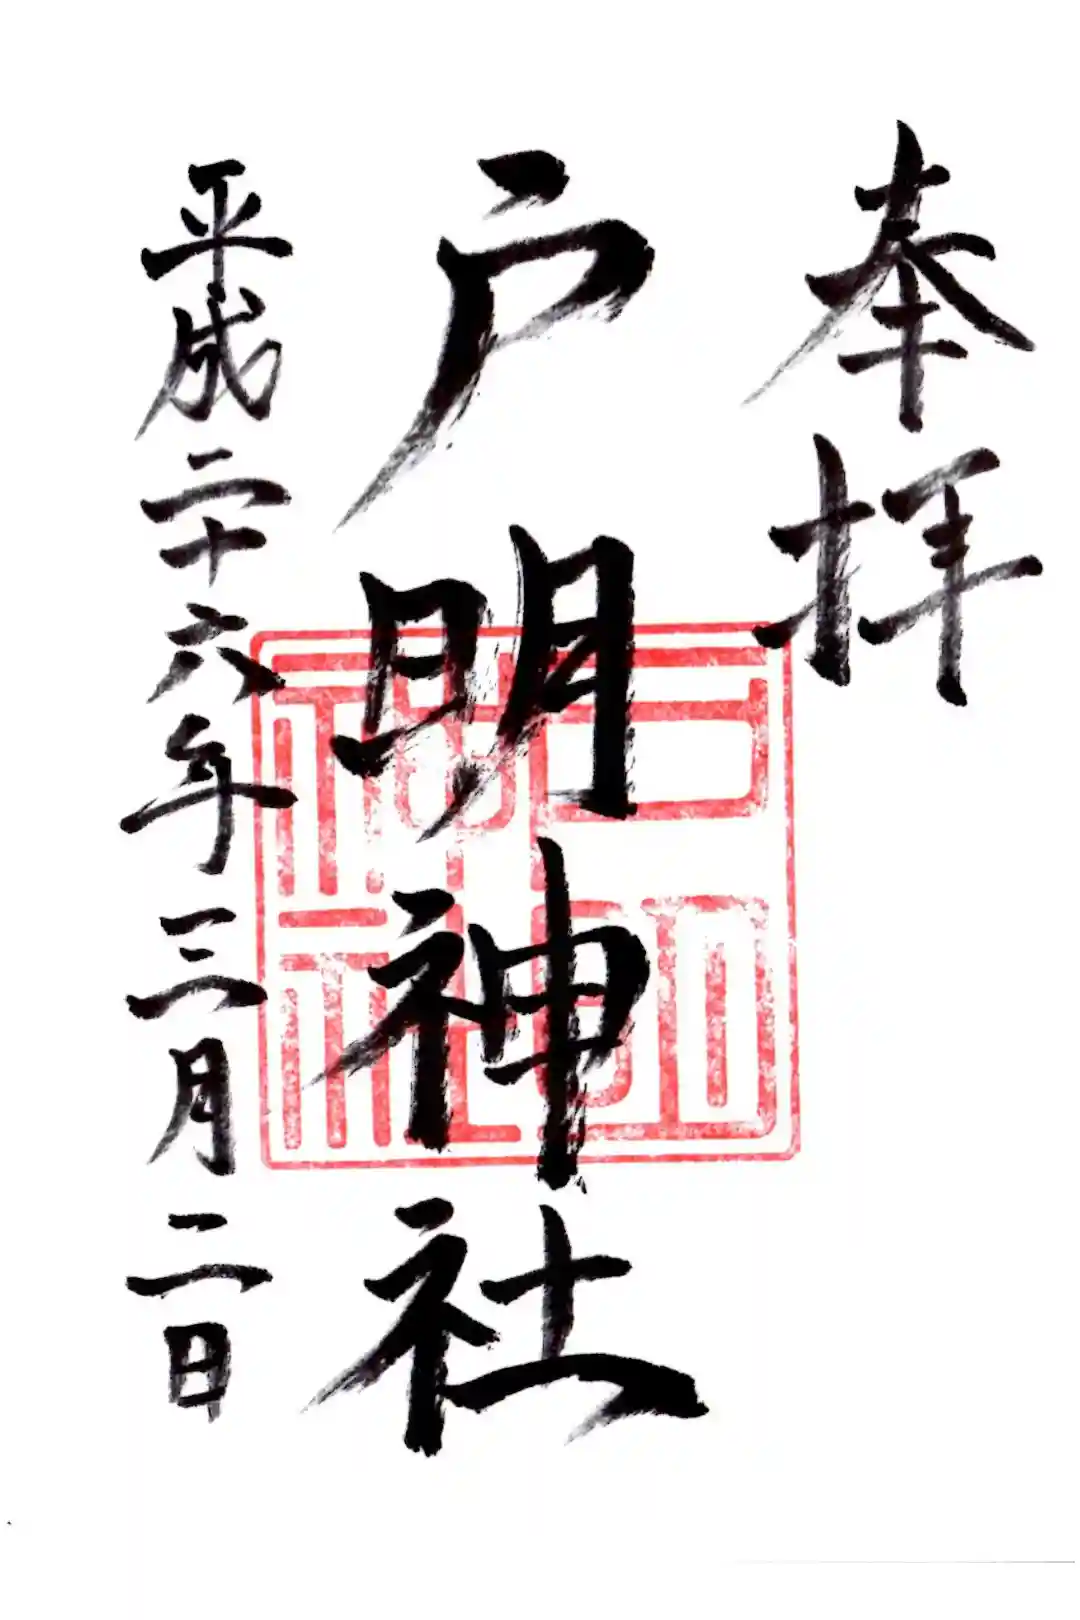 奉拝
戸明神社
戸明神社
平成二十六年三月二日